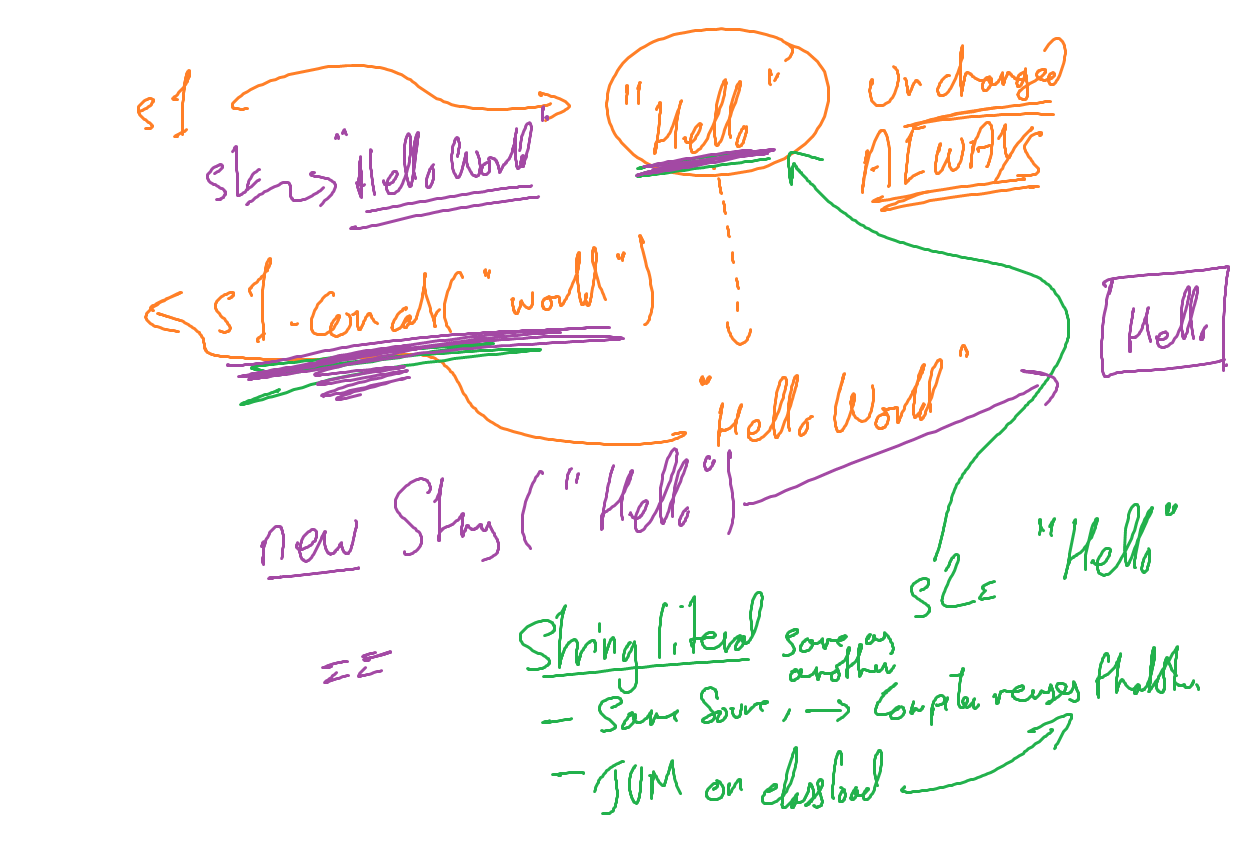 s1 "Hello" Unchanged
ALWAYS
"Hello World"
s1.Concat("world")
Hello
"Hello World"
new String("Hello")
s2 = "Hello"
String literal same as
another
==
- Same Source, → Compiler reuses that
- JVM on classload